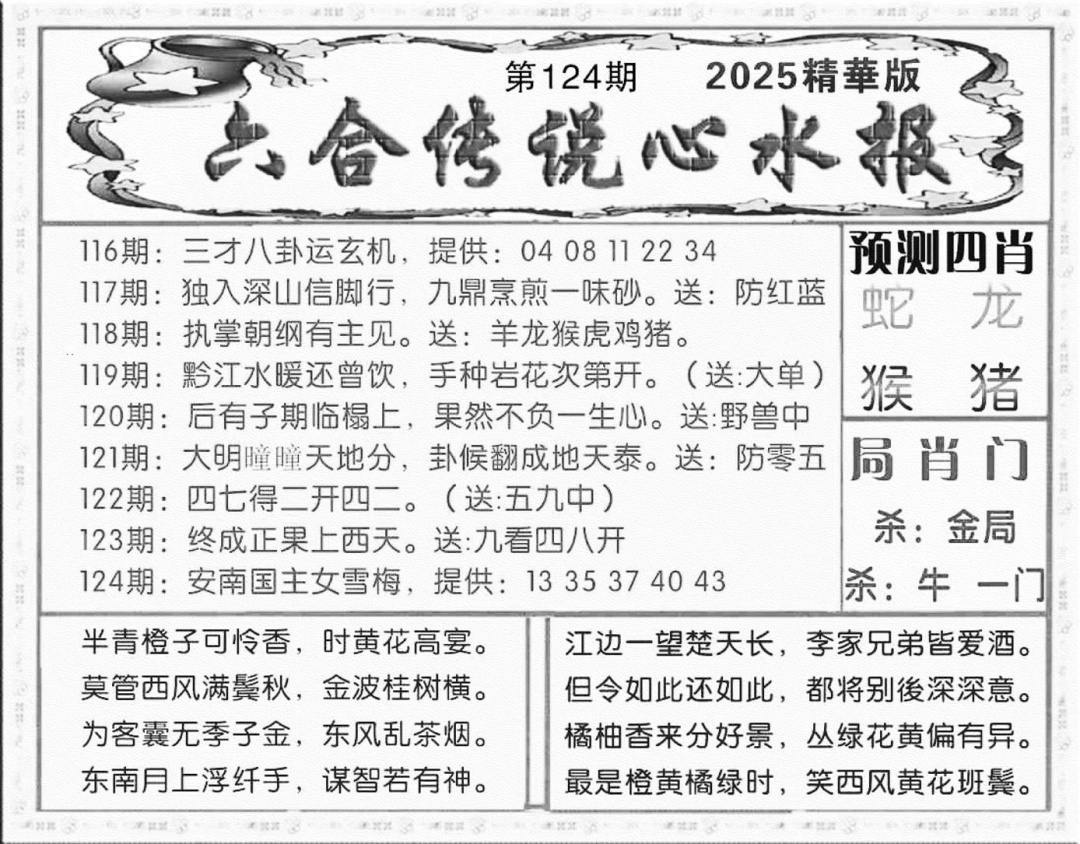 第124期 2025精華版
六合传说心水报
116期：三才八卦运玄机，提供：04 08 11 22 34
117期：独入深山信脚行，九鼎烹煎一味砂。送：防红蓝
118期：执掌朝纲有主见。送：羊龙猴虎鸡猪。
119期：黔江水暖还曾饮，手种岩花次第开。（送:大单）
120期：后有子期临榻上，果然不负一生心。送:野兽中
121期：大明曈曈天地分，卦候翻成地天泰。送：防零五
122期：四七得二开四二。（送:五九中）
123期：终成正果上西天。送:九看四八开
124期：安南国主女雪梅，提供：13 35 37 40 43
预测四肖
蛇 龙
猴 猪
局肖门
杀：金局
杀：牛 一门
半青橙子可怜香，时黄花高宴。
莫管西风满鬓秋，金波桂树横。
为客囊无季子金，东风乱茶烟。
东南月上浮纤手，谋智若有神。
江边一望楚天长，李家兄弟皆爱酒。
但令如此还如此，都将别後深深意。
橘柚香来分好景，丛绿花黄偏有异。
最是橙黄橘绿时，笑西风黄花班鬓。